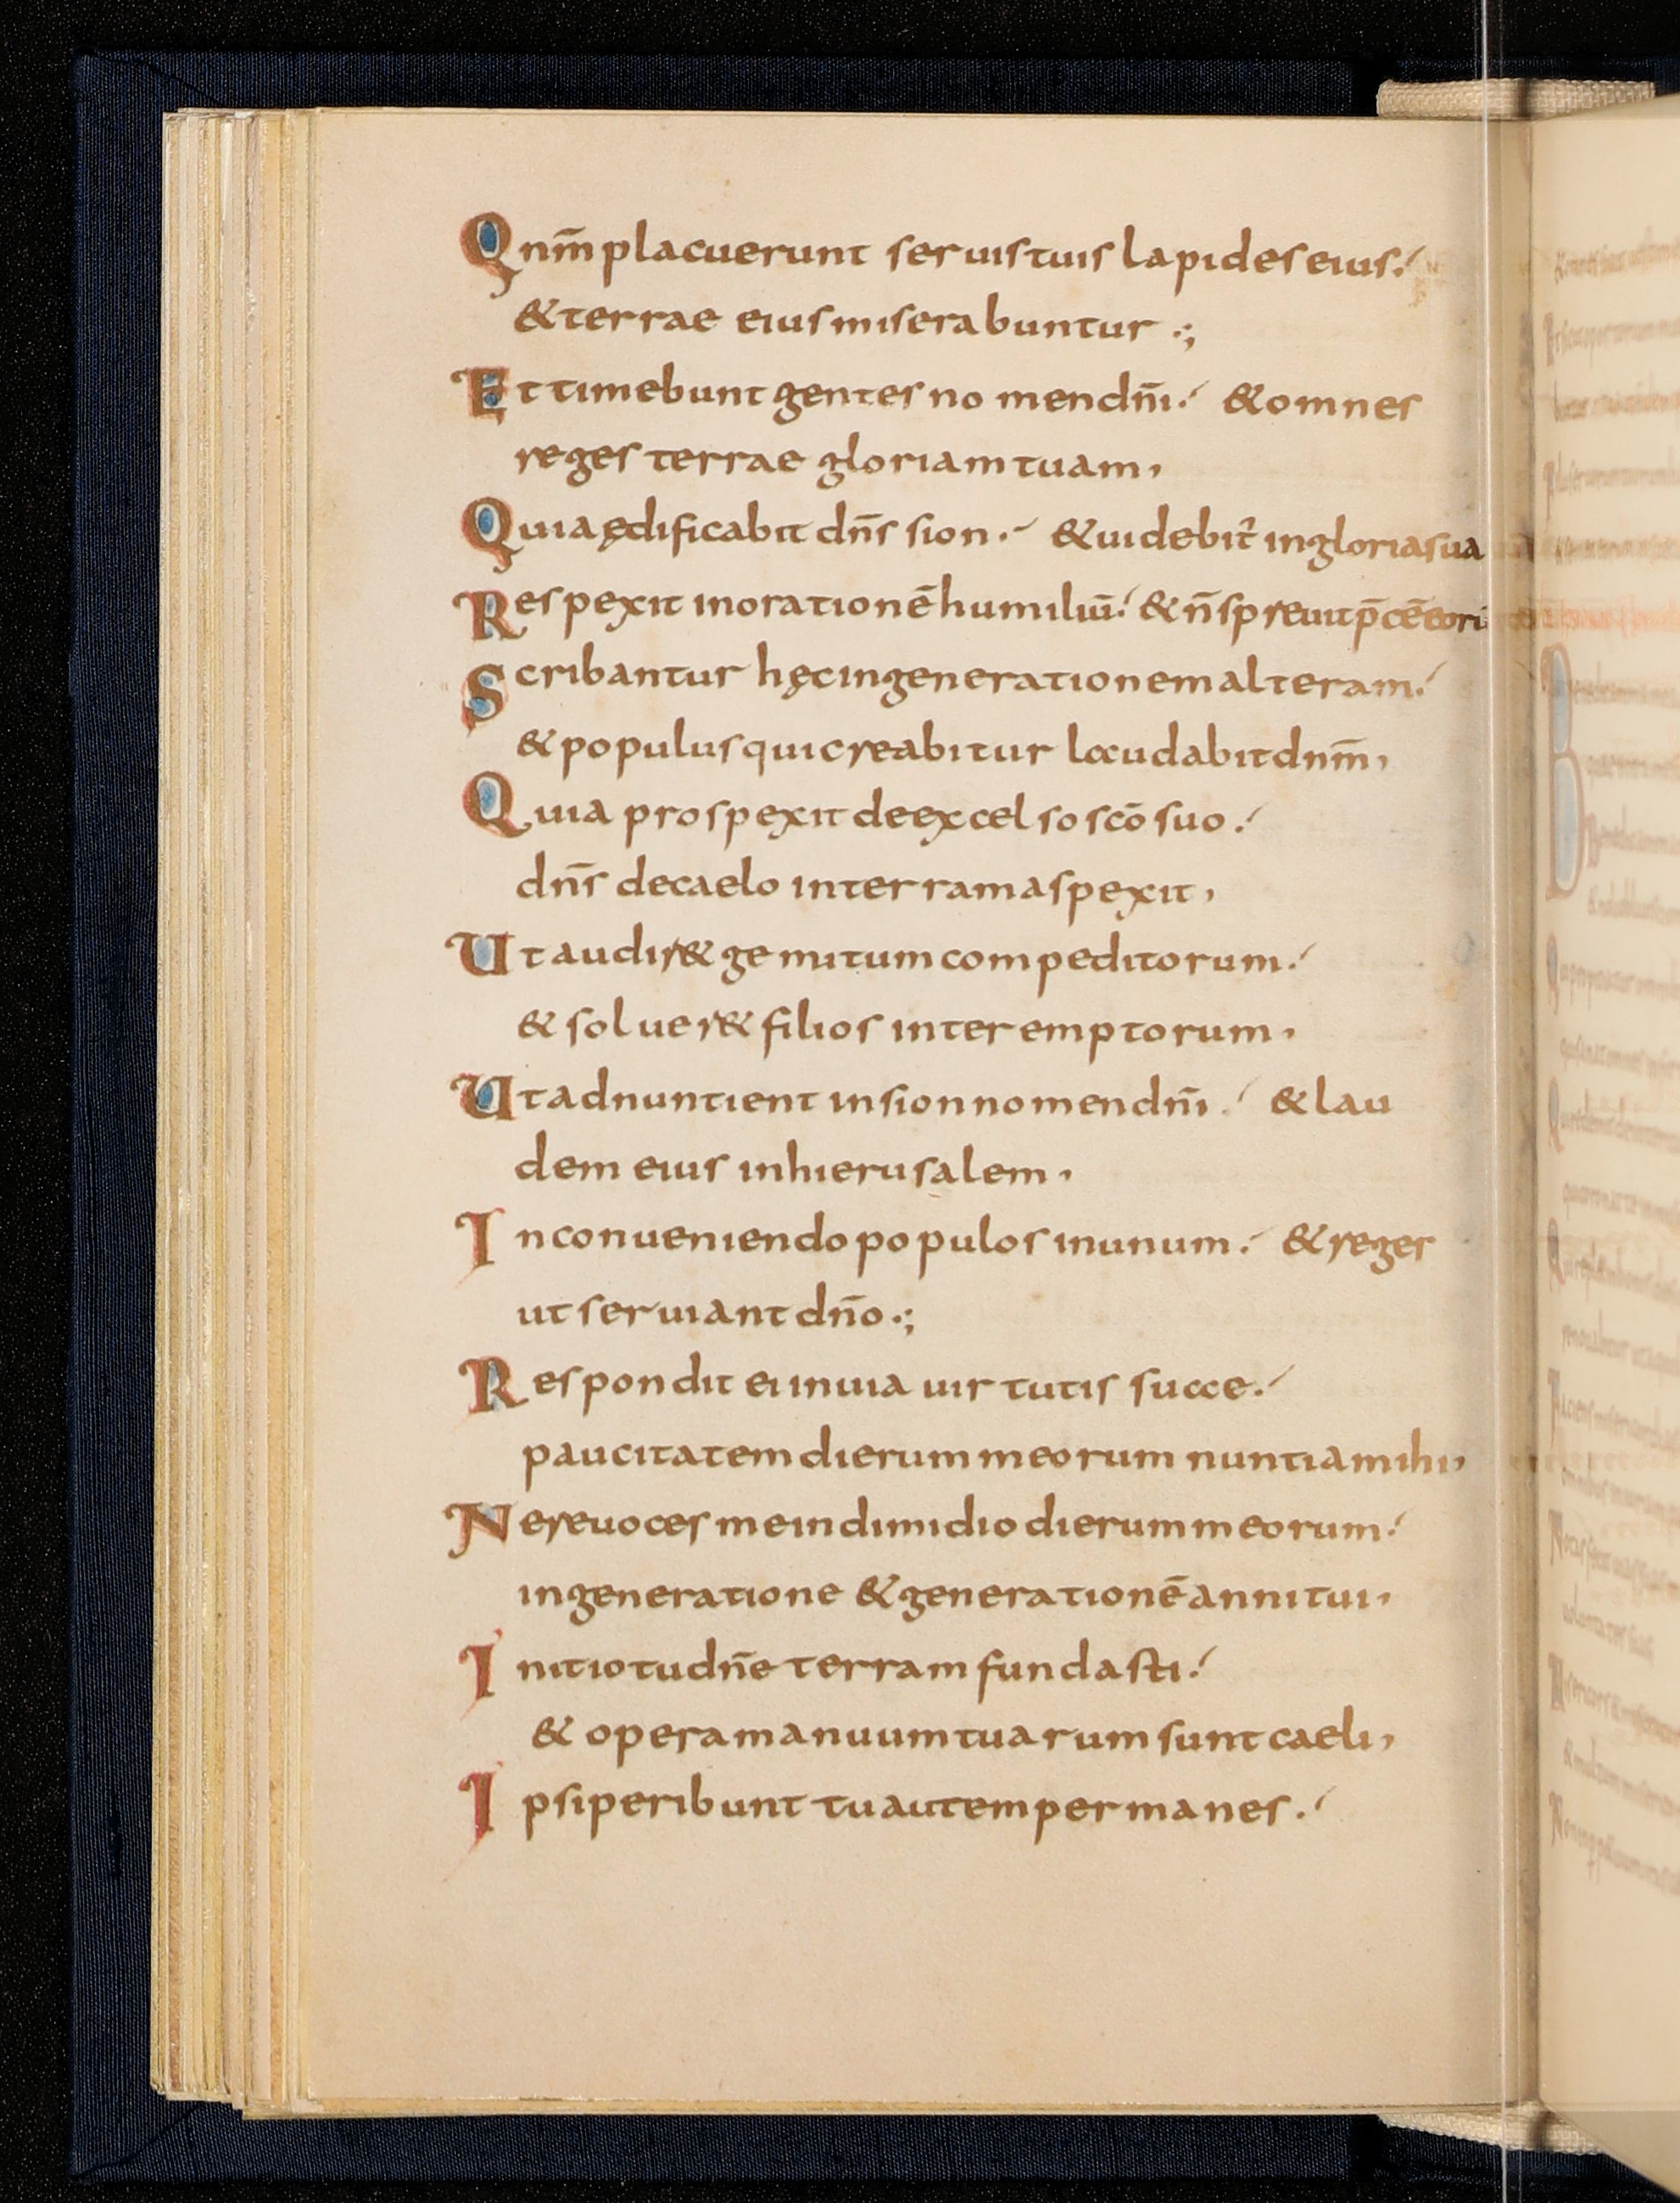 Qnm̄ placuerunt seruis tuis lapides eius.
& terrae eius miserabuntur .;
Et timebunt gentes nomen dn̄i. & omnes
reges terrae gloriam tuam,
Quia ędificabit dn̄s sion. & uidebit᷑ in gloria sua
Respexit in orationē humiliū. & n̄ spreuit p̄cē eorū
Scribantur hęc in generationem alteram.
& populus qui creabitur laudabit dnm̄,
Quia prospexit de excelso scō suo.
dn̄s de caelo in terram aspexit,
Ut audir& gemitum compeditorum.
& soluer& filios interemptorum,
Ut adnuntient in sion nomen dn̄i. & lau
dem eius in hierusalem,
In conueniendo populos in unum. & reges
ut seruiant dn̄o.;
Respondit ei in uia uirtutis suae.
paucitatem dierum meorum nuntia mihi,
Ne reuoces me in dimidio dierum meorum.
in generatione & generationē anni tui,
Initio tu dn̄e terram fundasti.
& opera manuum tuarum sunt caeli,
Ipsi peribunt tu autem permanes.